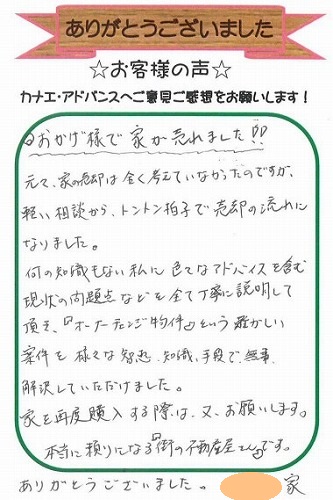 ありがとうございました
☆お客様の声☆
カナエ・アドバンスへご意見ご感想をお願いします！
おかげ様で家が売れました!!
元々、家の売却は全く考えていなかったのですが、
軽い相談から、トントン拍子で売却の流れに
なりました。
何の知識もない私に色々なアドバイスを含む
現状の問題点などを全て丁寧に説明して
頂き、『オーナーチェンジ物件』という難かしい
案件を様々な智恵、知識、手段で、無事、
解決していただけました。
家を再度購入する際は、又、お願いします。
本当に頼りになる『街の不動産屋さん』です。
ありがとうございました。 家